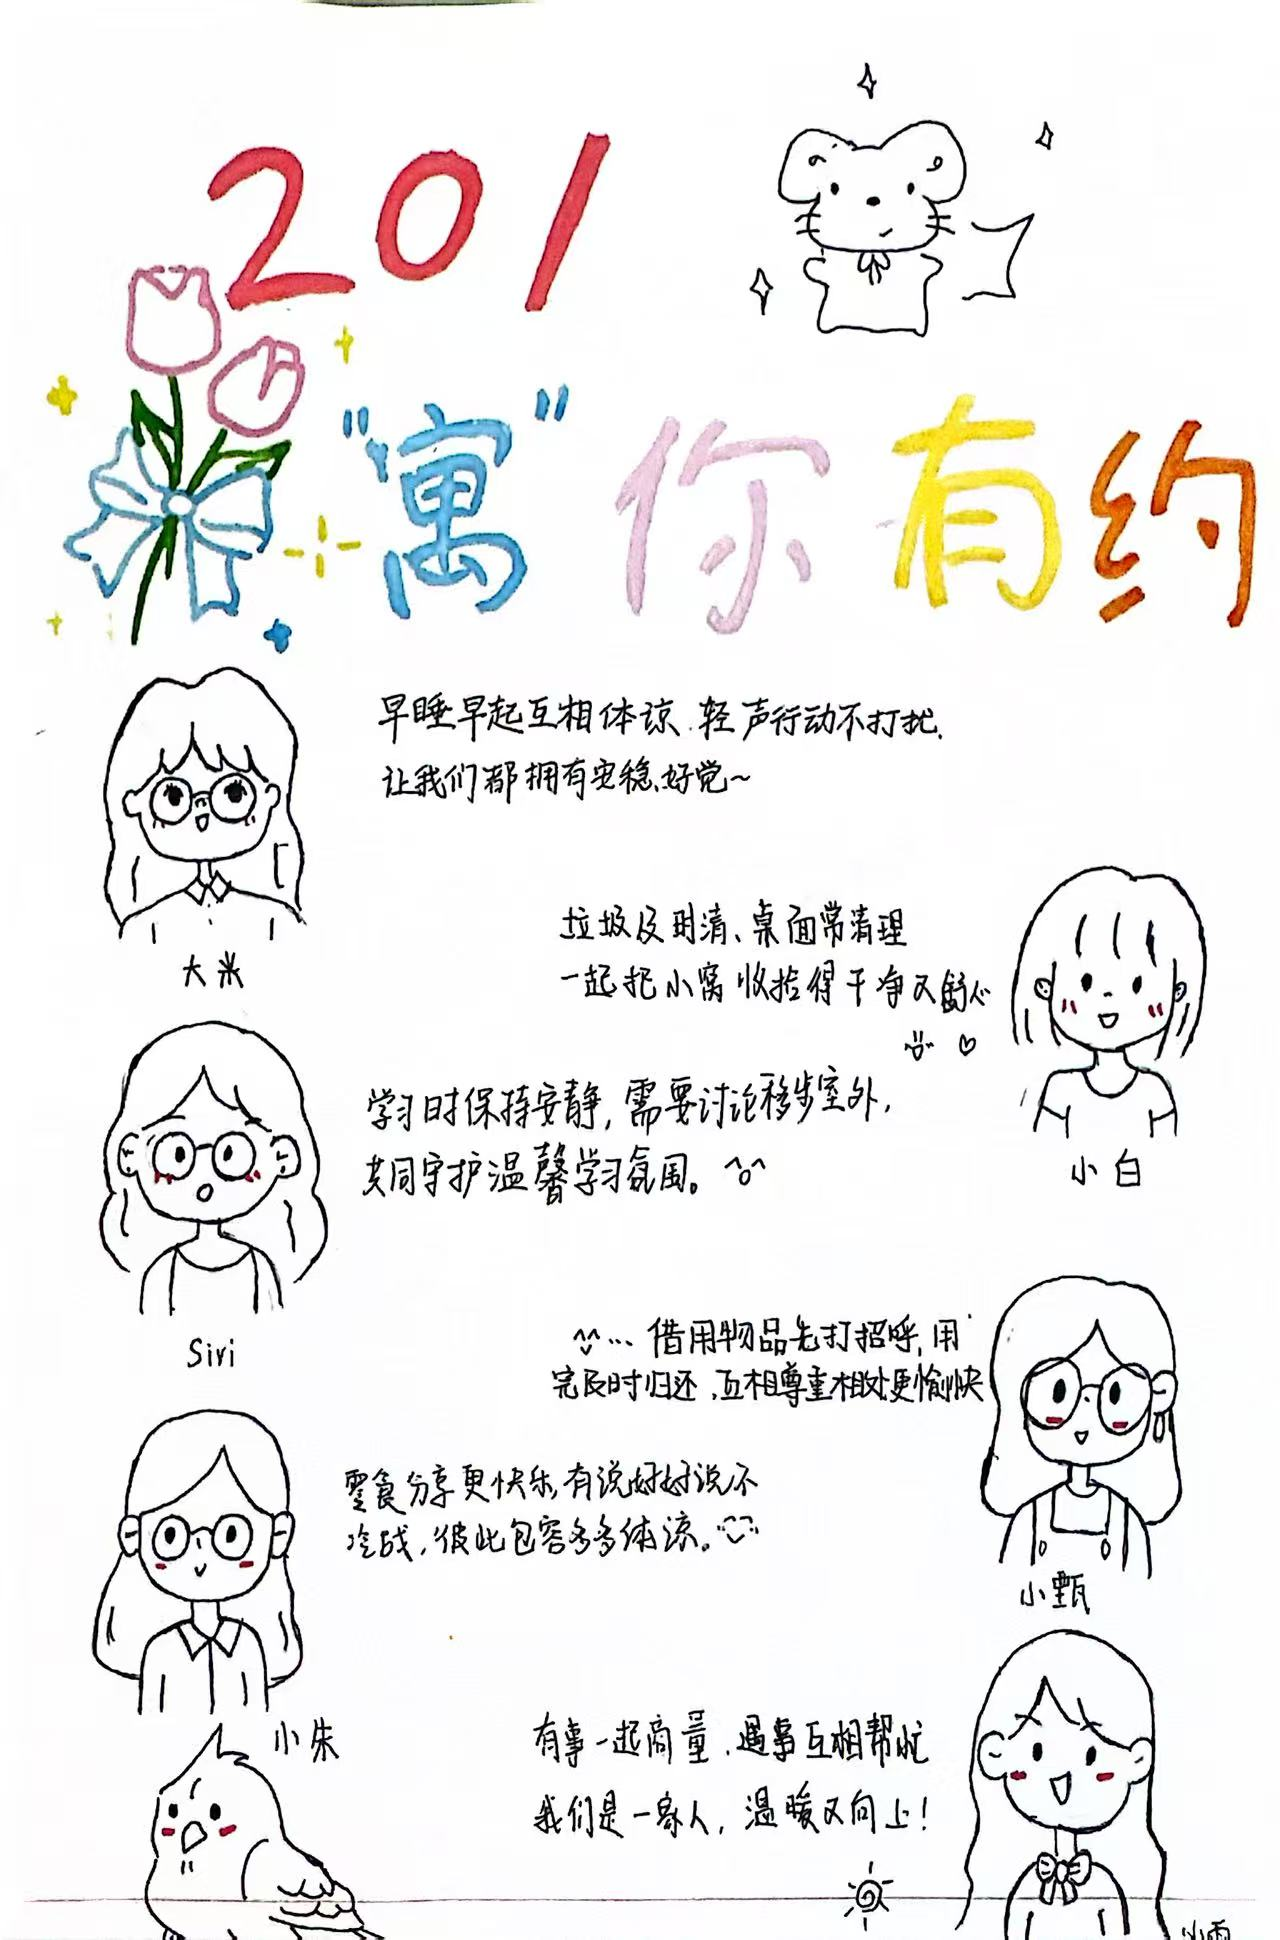 201
"寓"你有约
早睡早起互相体谅.轻声行动不打扰.
让我们都拥有安稳好觉~
大米
垃圾及时清、桌面常清理
一起把小窝收拾得干净又舒心
小白
学习时保持安静,需要讨论移步室外,
共同守护温馨学习氛围。
Siri
借用物品先打招呼,用
完及时归还,互相尊重相处更愉快
小甄
零食分享更快乐,有说好好说不
冷战,彼此包容多多体谅。
小朱
有事一起商量,遇事互相帮忙
我们是一家人,温暖又向上!
小雨